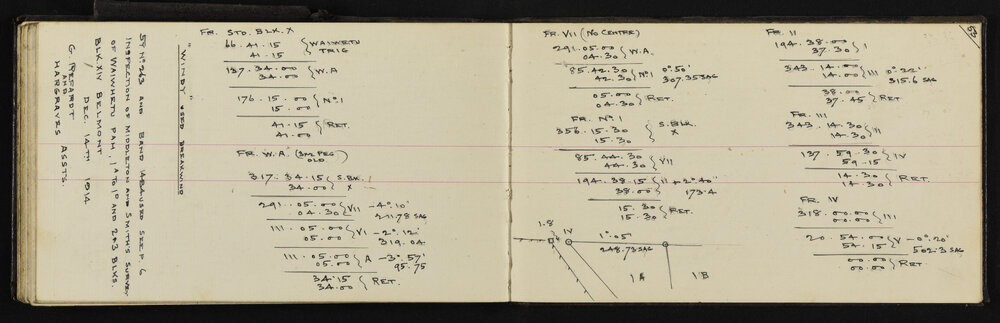 5" No 243 AND BAND 14B USED SEE P. 6
INSPECTION OF MIDDLETON AND SMITH'S SURVEY
OF WAIWHETU PAH, 1A TO 1D AND 2 & 3 BLKS.
BLK XIV BELMONT
DEC. 14TH 1914
G.
AND
HARGRAVES ASSTS.
"WINDY" & SEED BREAKING
FR. STD. BLK. X
66.41.15 WAIWHETU
41.15 TRIG
137.34.00 W.A
34.00
176.15.00 No 1
15.00
41.15 RET.
41.00
FR. W.A (3RD PEG)
OLD
317.34.15 S.BK.
34.00 X
291.05.00 VII -4°.10'
04.30 271.78 SAG
111.05.00 VI -2°.12'
05.00 319.04
111.05.00 A -3°.57'
05.00 95.75
34.15 RET.
34.00
53
FR. VII (NO CENTRE)
291.05.00 W.A.
04.30
85.42.30 No 1 0°.50'
42.30 307.35 SAG
05.00 RET.
04.30
FR. No 1
356.15.30 S.BLK.
15.30 X
85.44.30 VII
44.30
194.38.15 II +2°.40'
38.00 173.4
15.30 RET.
15.30
1.8
IV
1°.05'
248.73 SAG
1A
1B
FR. II
194.38.00 I
37.30
343.14.00 III 0°.22'
14.00 315.6 SAG
38.00 RET.
37.45
FR. III
343.14.30 II
14.30
137.59.30 IV
59.15
14.30 RET.
14.30
FR. IV
318.00.00 III
00.00
20.54.00 V -0°.20'
54.15 502.3 SAG
00.00 RET.
00.00